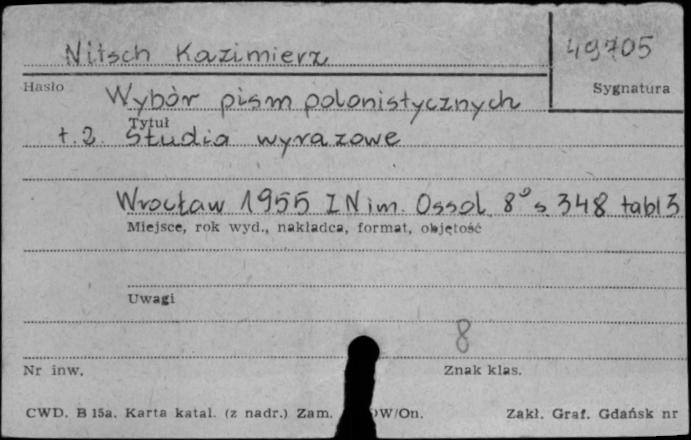 Nitsch Kazimierz
49705
Hasło
Sygnatura
Wybór pism polonistycznych
Tytuł
t. 2. Studia wyrazowe
Wrocław 1955 ZN im. Ossol. 8° s. 348 tabl 3
Miejsce, rok wyd., nakładca, format, objętość
Uwagi
8
Nr inw.
Znak klas.
CWD. B 15a. Karta katal. (z nadr.) Zam. OW/On.
Zakł. Graf. Gdańsk nr